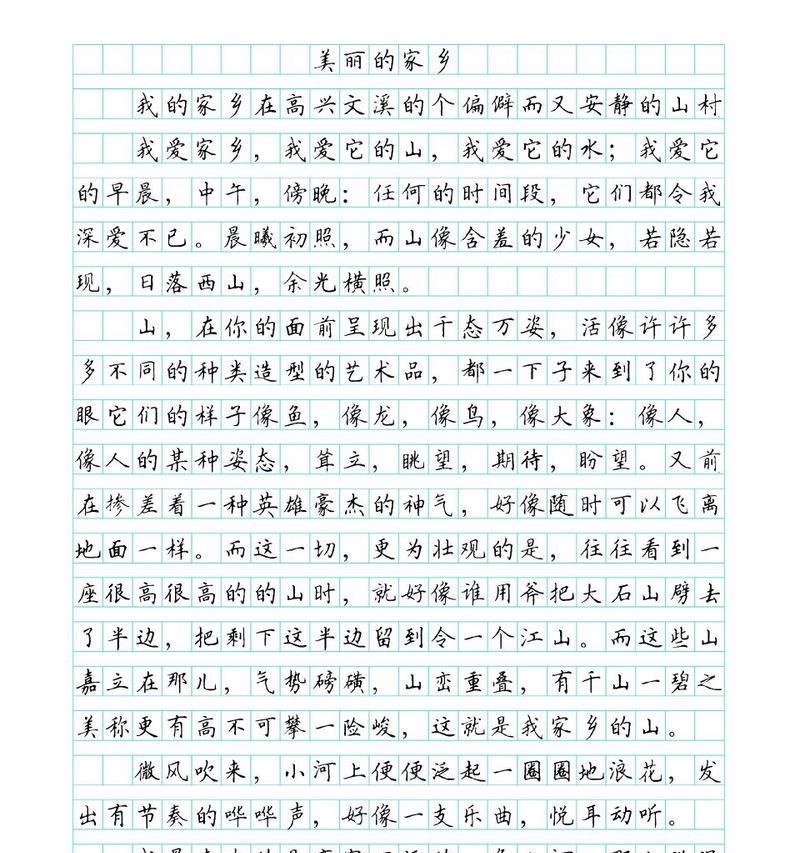 美丽的家乡
我的家乡在高兴文溪的个偏僻而又安静的山村
我爱家乡，我爱它的山，我爱它的水；我爱它
的早晨，中午，傍晚：任何的时间段，它们都令我
深爱不已。晨曦初照，而山像含羞的少女，若隐若
现，日落西山，余光横照。
山，在你的面前呈现出千态万姿，活像许许多
多不同的种类造型的艺术品，都一下子来到了你的
眼它们的样子像鱼，像龙，像鸟，像大象：像人，
像人的某种姿态，耸立，眺望，期待，盼望。又前
在掺差着一种英雄豪杰的神气，好像随时可以飞离
地面一样。而这一切，更为壮观的是，往往看到一
座很高很高的的山时，就好像谁用斧把大石山劈去
了半边，把剩下这半边留到令一个江山。而这些山
嘉立在那儿，气势磅磺，山峦重叠，有千山一碧之
美称更有高不可攀一险峻，这就是我家乡的山。
微风吹来，小河上便便泛起一圈圈地浪花，发
出有节奏的哗哗声，好像一支乐曲，悦耳动听。